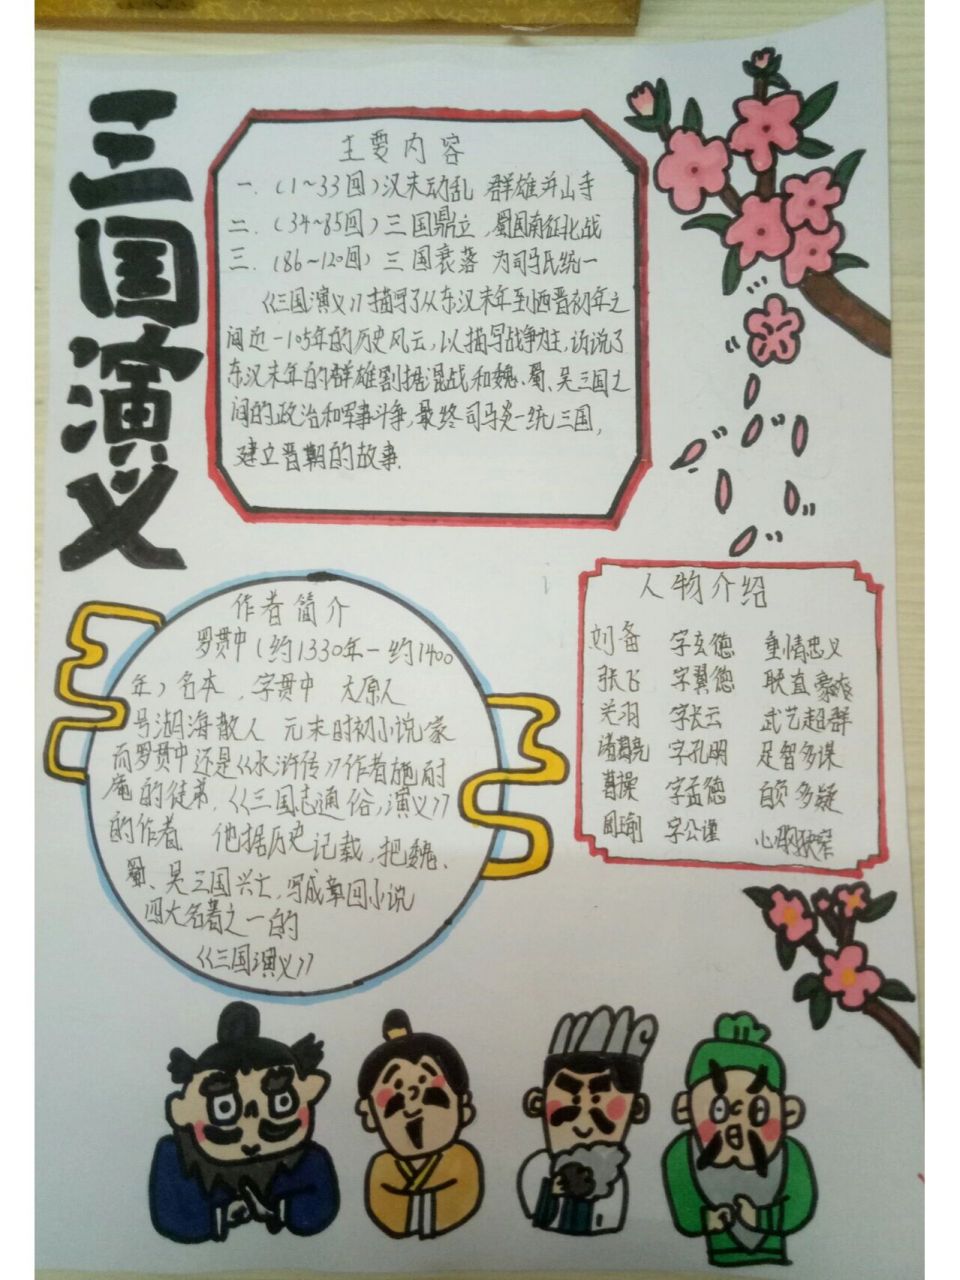 三国演义
主要内容
一.(1~33回)汉末动乱 群雄并山寺
二.(34~85回)三国鼎立,蜀国南征北战
三.(86~120回)三国衰落 为司马氏统一
《三国演义》描写了从东汉末年到西晋初年之
间近一105年的历史风云,以描写战争为主,诉说了
东汉末年的群雄割据混战和魏、蜀、吴三国之
间的政治和军事斗争,最终司马炎一统三国,
建立晋朝的故事.
作者简介
罗贯中(约1330年-约1400
年)名本,字贯中 太原人
号湖海散人 元末时初小说家
而罗贯中还是《水浒传》作者施耐
庵的徒弟,《三国志通俗,演义》
的作者 他据历史记载,把魏、
蜀、吴三国兴亡,写成章回小说
四大名著之一的
《三国演义》
人物介绍
刘备 字玄德 重情忠义
张飞 字翼德 耿直豪爽
关羽 字长云 武艺超群
诸葛亮 字孔明 足智多谋
曹操 字孟德 自负多疑
周瑜 字公谨 心胸狭窄